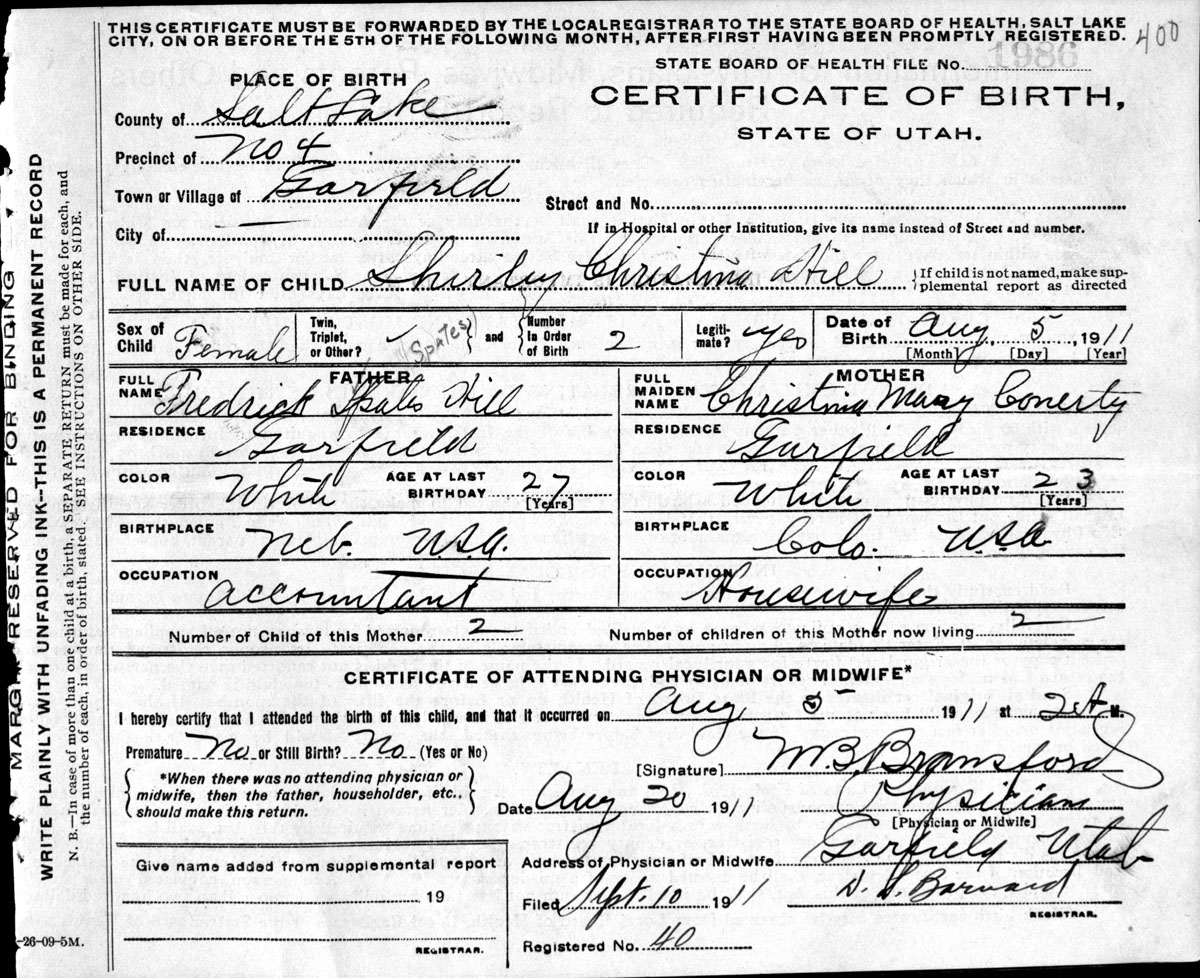 THIS CERTIFICATE MUST BE FORWARDED BY THE LOCAL REGISTRAR TO THE STATE BOARD OF HEALTH, SALT LAKE
CITY, ON OR BEFORE THE 5TH OF THE FOLLOWING MONTH, AFTER FIRST HAVING BEEN PROMPTLY REGISTERED.
400
STATE BOARD OF HEALTH FILE No. 1986
PLACE OF BIRTH
CERTIFICATE OF BIRTH,
STATE OF UTAH.
County of Salt Lake
Precinct of No 4
Town or Village of Garfield
Street and No.
City of
If in Hospital or other Institution, give its name instead of Street and number.
FULL NAME OF CHILD Shirley Christina Hill
{If child is not named, make sup-
plemental report as directed
Sex of Child Female
Twin, Triplet, or Other?
and
Number in Order of Birth 2
Legiti-mate? yes
Date of Birth Aug. 5, 1911
[Month] [Day] [Year]
(Spates)
FATHER
FULL NAME Fredrick Spates Hill
RESIDENCE Garfield
COLOR White AGE AT LAST BIRTHDAY 27
[Years]
BIRTHPLACE Neb. U.S.A.
OCCUPATION Accountant
MOTHER
FULL MAIDEN NAME Christina Mary Conerty
RESIDENCE Garfield
COLOR White AGE AT LAST BIRTHDAY 23
[Years]
BIRTHPLACE Colo. U.S.A
OCCUPATION Housewife
Number of Child of this Mother 2
Number of children of this Mother now living 2
CERTIFICATE OF ATTENDING PHYSICIAN OR MIDWIFE*
I hereby certify that I attended the birth of this child, and that it occurred on Aug 5 1911 at 2 A M.
Premature No or Still Birth? No (Yes or No)
*When there was no attending physician or
midwife, then the father, householder, etc.,
should make this return.
[Signature] M.B. Bransford
Date Aug 20 1911 Physician
[Physician or Midwife]
Give name added from supplemental report
19
REGISTRAR.
Address of Physician or Midwife Garfield Utah
Filed Sept. 10 1911 D. S. Barnard
REGISTRAR.
Registered No. 40
-26-09-5M.
MARGIN RESERVED FOR BINDING
WRITE PLAINLY WITH UNFADING INK—THIS IS A PERMANENT RECORD
N. B.—In case of more than one child at a birth, a SEPARATE RETURN must be made for each, and
the number of each, in order of birth, stated. SEE INSTRUCTIONS ON OTHER SIDE.